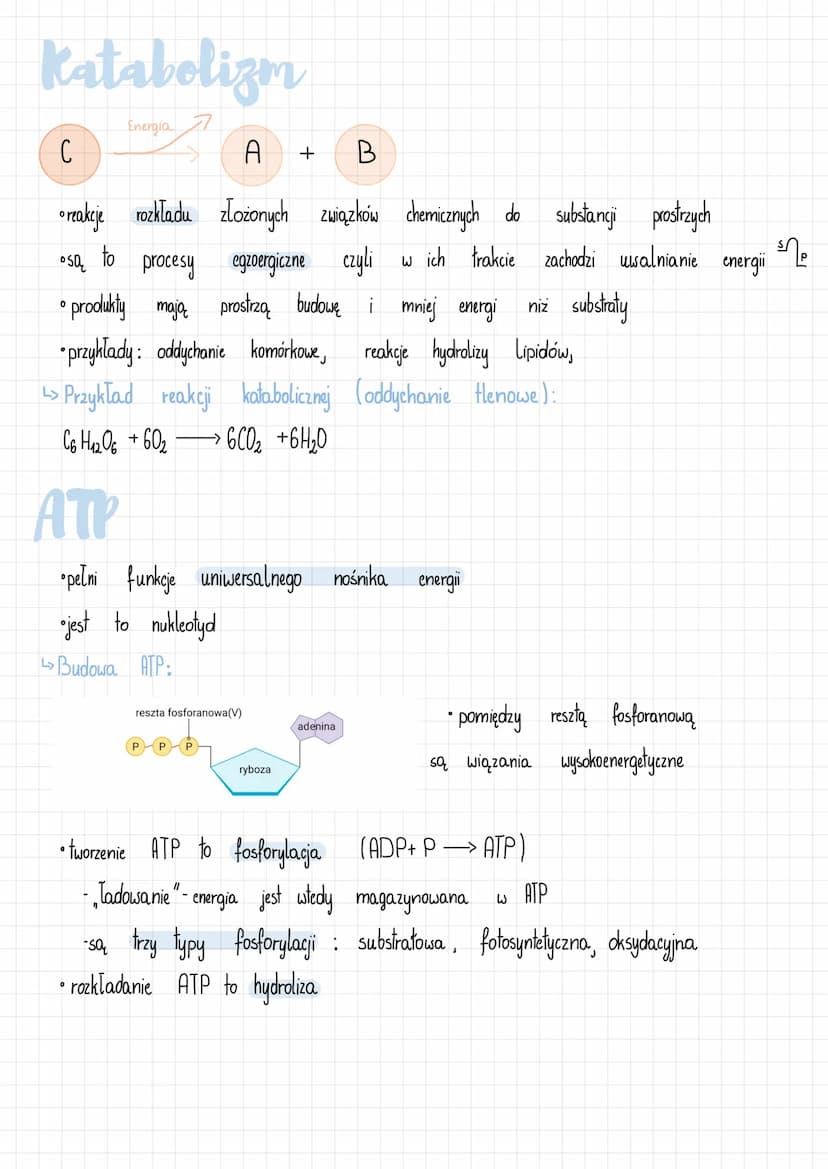 Katabolizm
Energia
C A + B
•reakcje rozkładu złożonych związków chemicznych do substancji prostrzych
•są to procesy egzoergiczne czyli w ich trakcie zachodzi uwalnianie energii S P
•produkty mają prostrzą budowę i mniej energi niż substraty
•przykłady: oddychanie komórkowe, reakcje hydrolizy lipidów,
↳Przykład reakcji katabolicznej (oddychanie tlenowe):
C₆H₁₂O₆ + 6O₂ ⟶ 6CO₂ +6H₂O
ATP
•pełni funkcje uniwersalnego nośnika energii
•jest to nukleotyd
↳Budowa ATP:
reszta fosforanowa(V)
adenina
P P P
ryboza
• pomiędzy resztą fosforanową
są wiązania wysokoenergetyczne
•tworzenie ATP to fosforylacja (ADP+ P ⟶ ATP)
-„ładowanie"- energia jest wtedy magazynowana w ATP
-są trzy typy fosforylacji : substratowa, fotosyntetyczna, oksydacyjna
•rozkładanie ATP to hydroliza